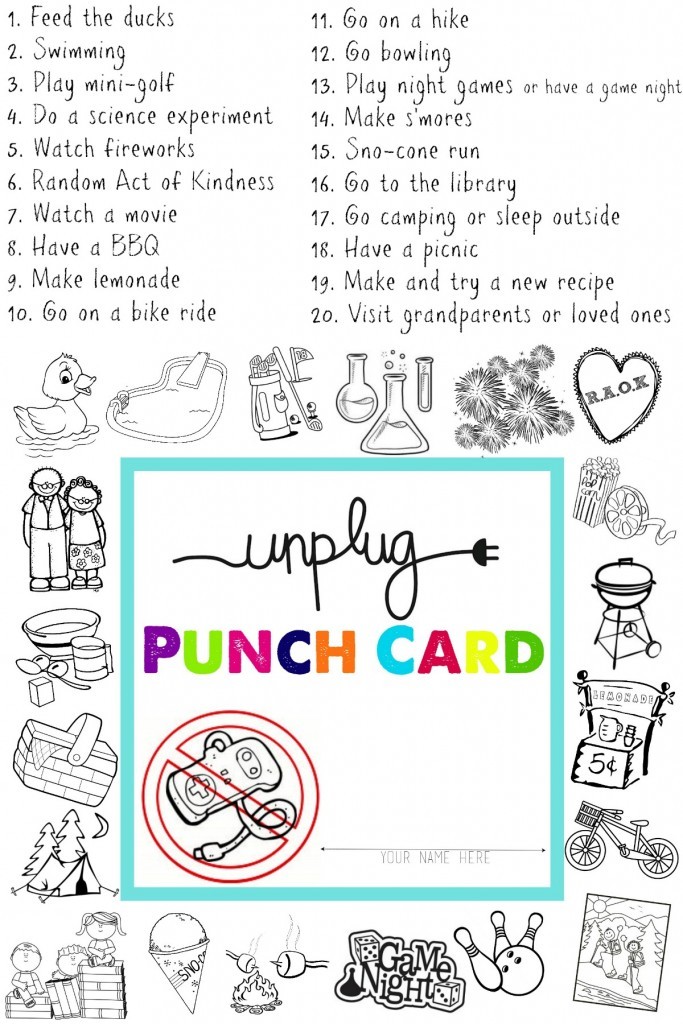 1. Feed the ducks
2. Swimming
3. Play mini-golf
4. Do a science experiment
5. Watch fireworks
6. Random Act of Kindness
7. Watch a movie
8. Have a BBQ
9. Make lemonade
10. Go on a bike ride
11. Go on a hike
12. Go bowling
13. Play night games or have a game night
14. Make s'mores
15. Sno-cone run
16. Go to the library
17. Go camping or sleep outside
18. Have a picnic
19. Make and try a new recipe
20. Visit grandparents or loved ones
18
R.A.O.K
Pop Corn
unplug
PUNCH CARD
LEMONADE
5¢
YOUR NAME HERE
SNO
GAME NIGHT